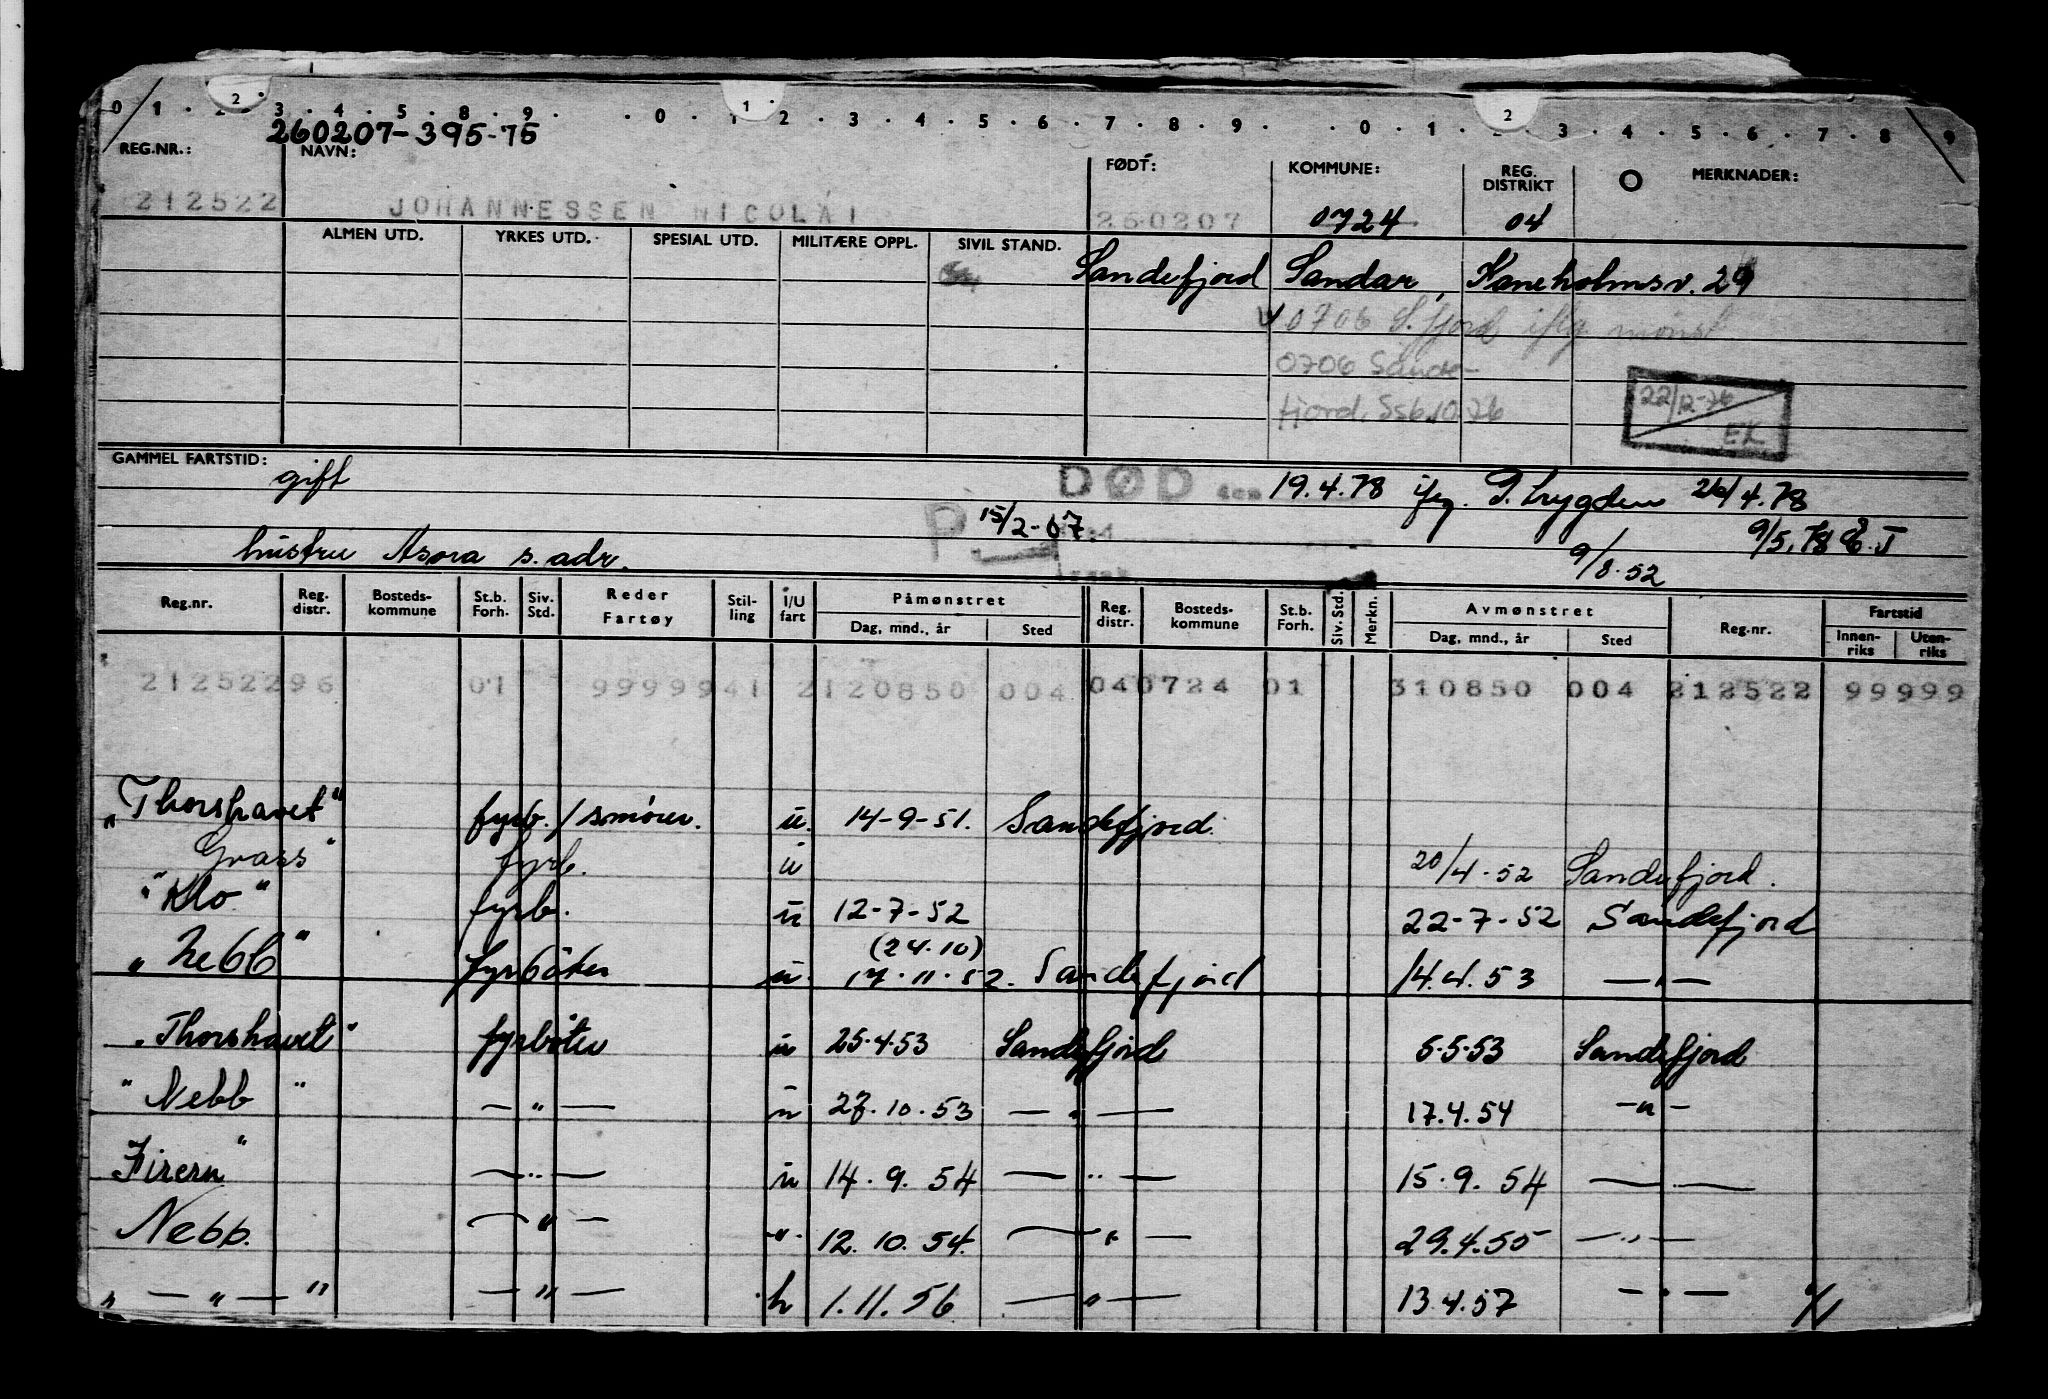 0 1 · 2 · 3 · 4 · 5 · 8 · 9 · · 0 · 1 · 2 · 3 · 4 · 5 · 6 · 7 · 8 · 9 · · 0 · 1 · 2 · 3 · 4 · 5 · 6 · 7 · 8 · 9
260207-395-75
REG.NR.: NAVN: FØDT: KOMMUNE: REG. DISTRIKT O MERKNADER:
212522 JOHANNESSEN NICOLAI 260207 0724 04
ALMEN UTD. YRKES UTD. SPESIAL UTD. MILITÆRE OPPL. SIVIL STAND.
Sandefjord Sandar, Kaneholmsv. 29
0706 S.fjord iflg mønst
0706 Sande-
fjord, S56.10.76
22/12-76
EK
GAMMEL FARTSTID:
gift DØD den 19.4.78 ifg. P. trygden 26/4.78
P 15/2-67 9/5.78 E.J
hustru Asora s. adr. 9/8.52
Reg.nr. Reg. distr. Bosteds-kommune St.b. Forh. Siv. Std. Reder Fartøy Stil-ling I/U fart Påmønstret Reg. distr. Bosteds-kommune St.b. Forh. Siv. Std. Merkn. Avmønstret Reg.nr. Fartstid
Dag, mnd., år Sted Dag, mnd., år Sted Innen-riks Uten-riks
21252296 01 9999941 2120850 004 040724 01 310850 004 212522 99999
„Thorshavet" fyrb. / smører. u. 14-9-51. Sandefjord.
Grass" fyrb. u 20/4.52 Sandefjord.
"Klo" fyrb. u 12-7-52 22-7-52 Sandefjord
(24.10)
„Nebb" fyrbøter u. 17.11.52. Sandefjord 14.4.53 — " —
„Thorshavet" fyrbøter u 25.4.53 Sandefjord 5.5.53 Sandefjord
"Nebb" — " — u 27.10.53 — " — 17.4.54 — " —
Firern" — " — u 14.9.54 — " — 15.9.54 — " —
Nebb. — " — " 12.10.54. — " — 29.4.55 — " —
„ — " — " — " — h 1.11.56 — " — 13.4.57 — " —